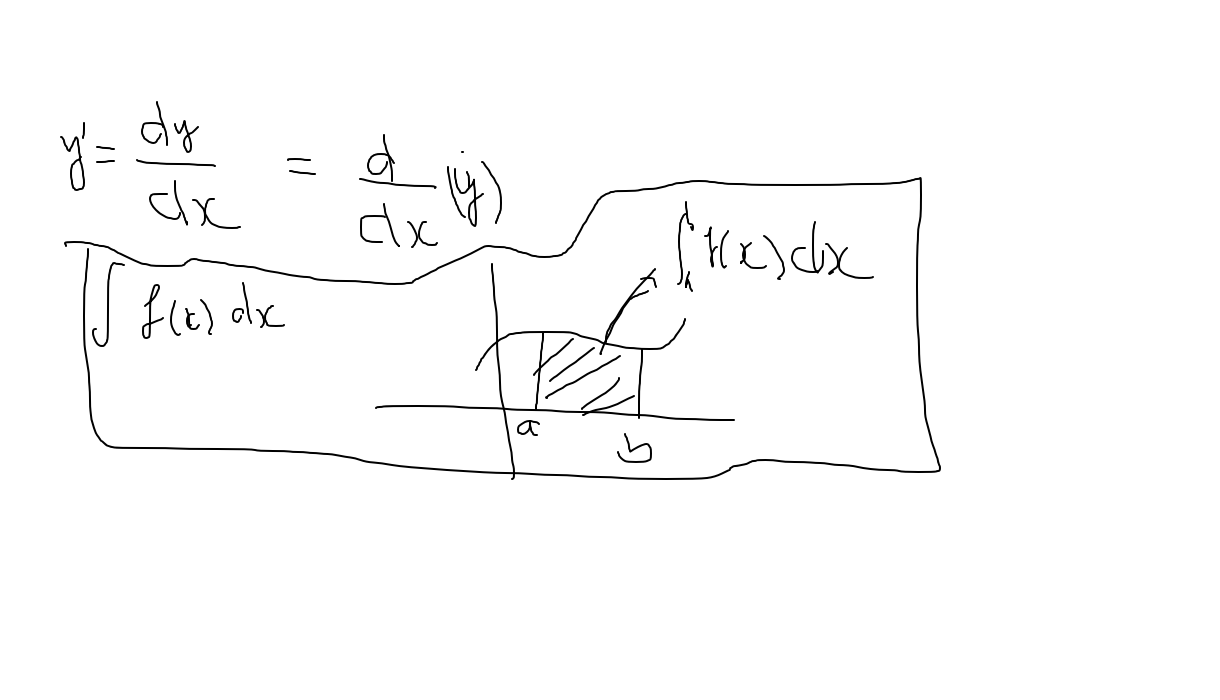 y' = dy/dx = d/dx (y)
∫ f(x) dx
∫ f(x) dx
a
b